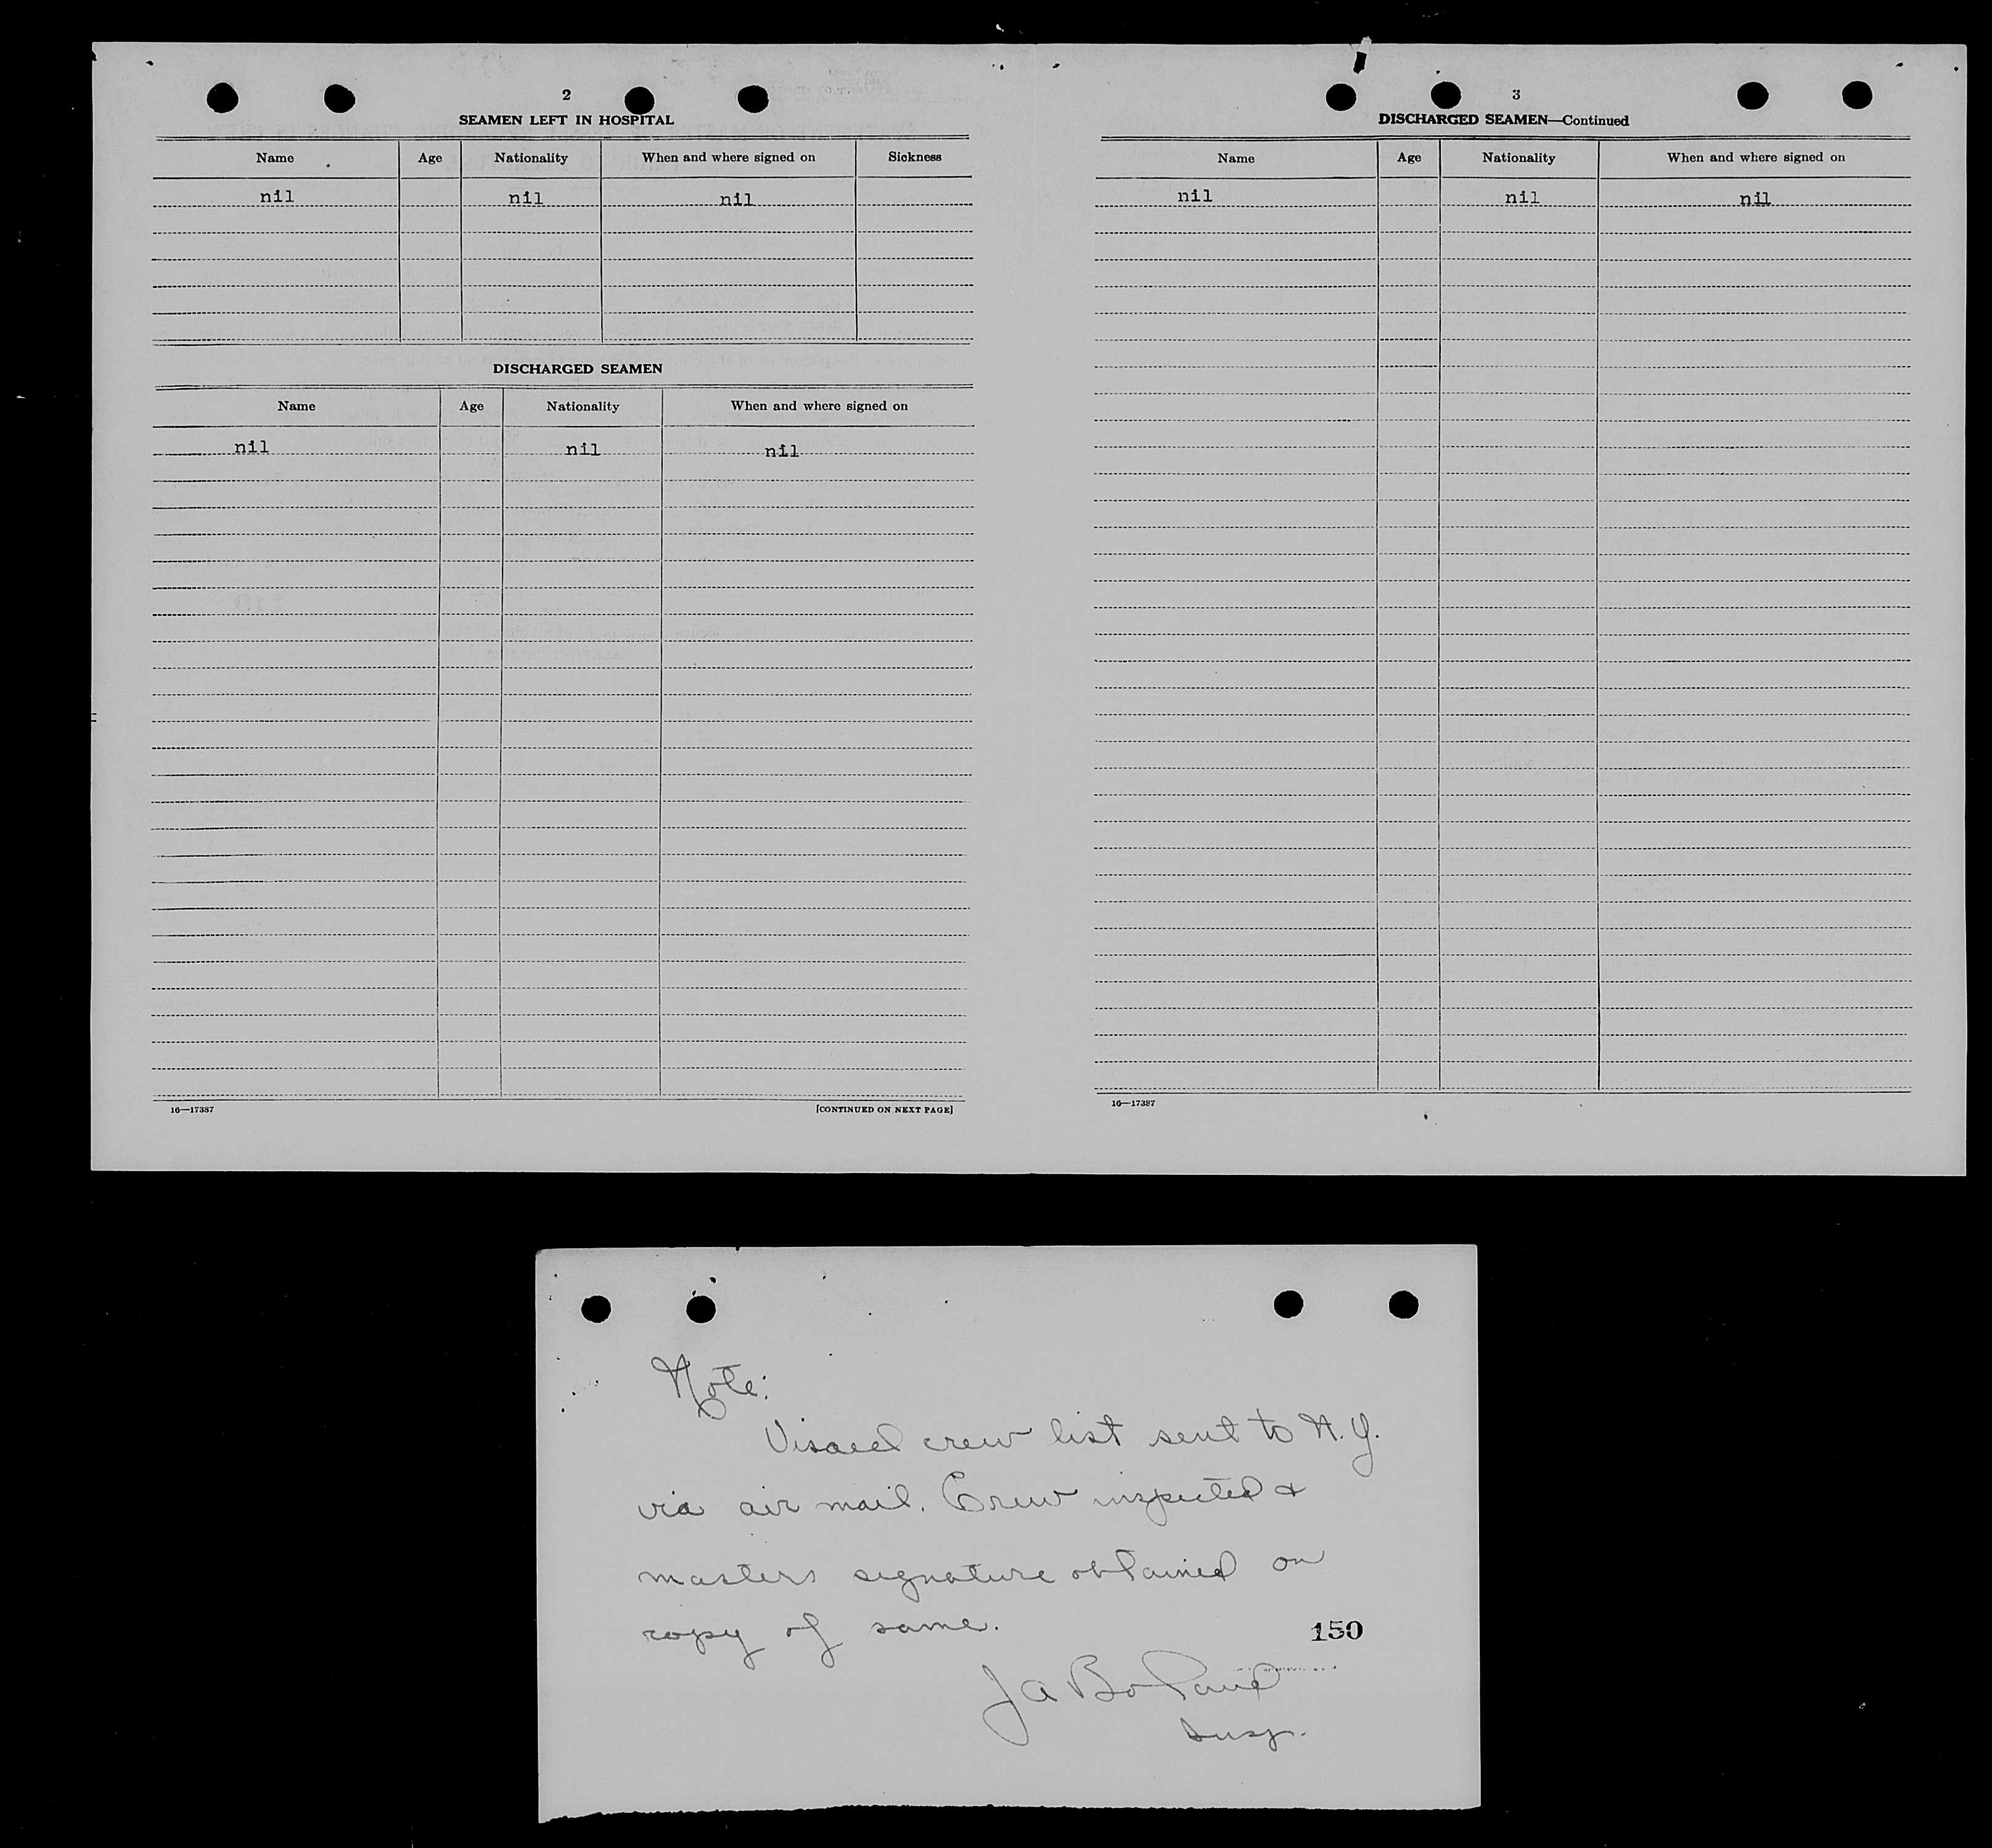 2
SEAMEN LEFT IN HOSPITAL
Name Age Nationality When and where signed on Sickness
nil nil nil
DISCHARGED SEAMEN
Name Age Nationality When and where signed on
nil nil nil
16—17387 [CONTINUED ON NEXT PAGE]
3
DISCHARGED SEAMEN—Continued
Name Age Nationality When and where signed on
nil nil nil
16—17387
Note:
Visaed crew list sent to N.Y.
via air mail. Crew inspected &
masters signature obtained on
copy of same.
150
J A Boland
Insp.